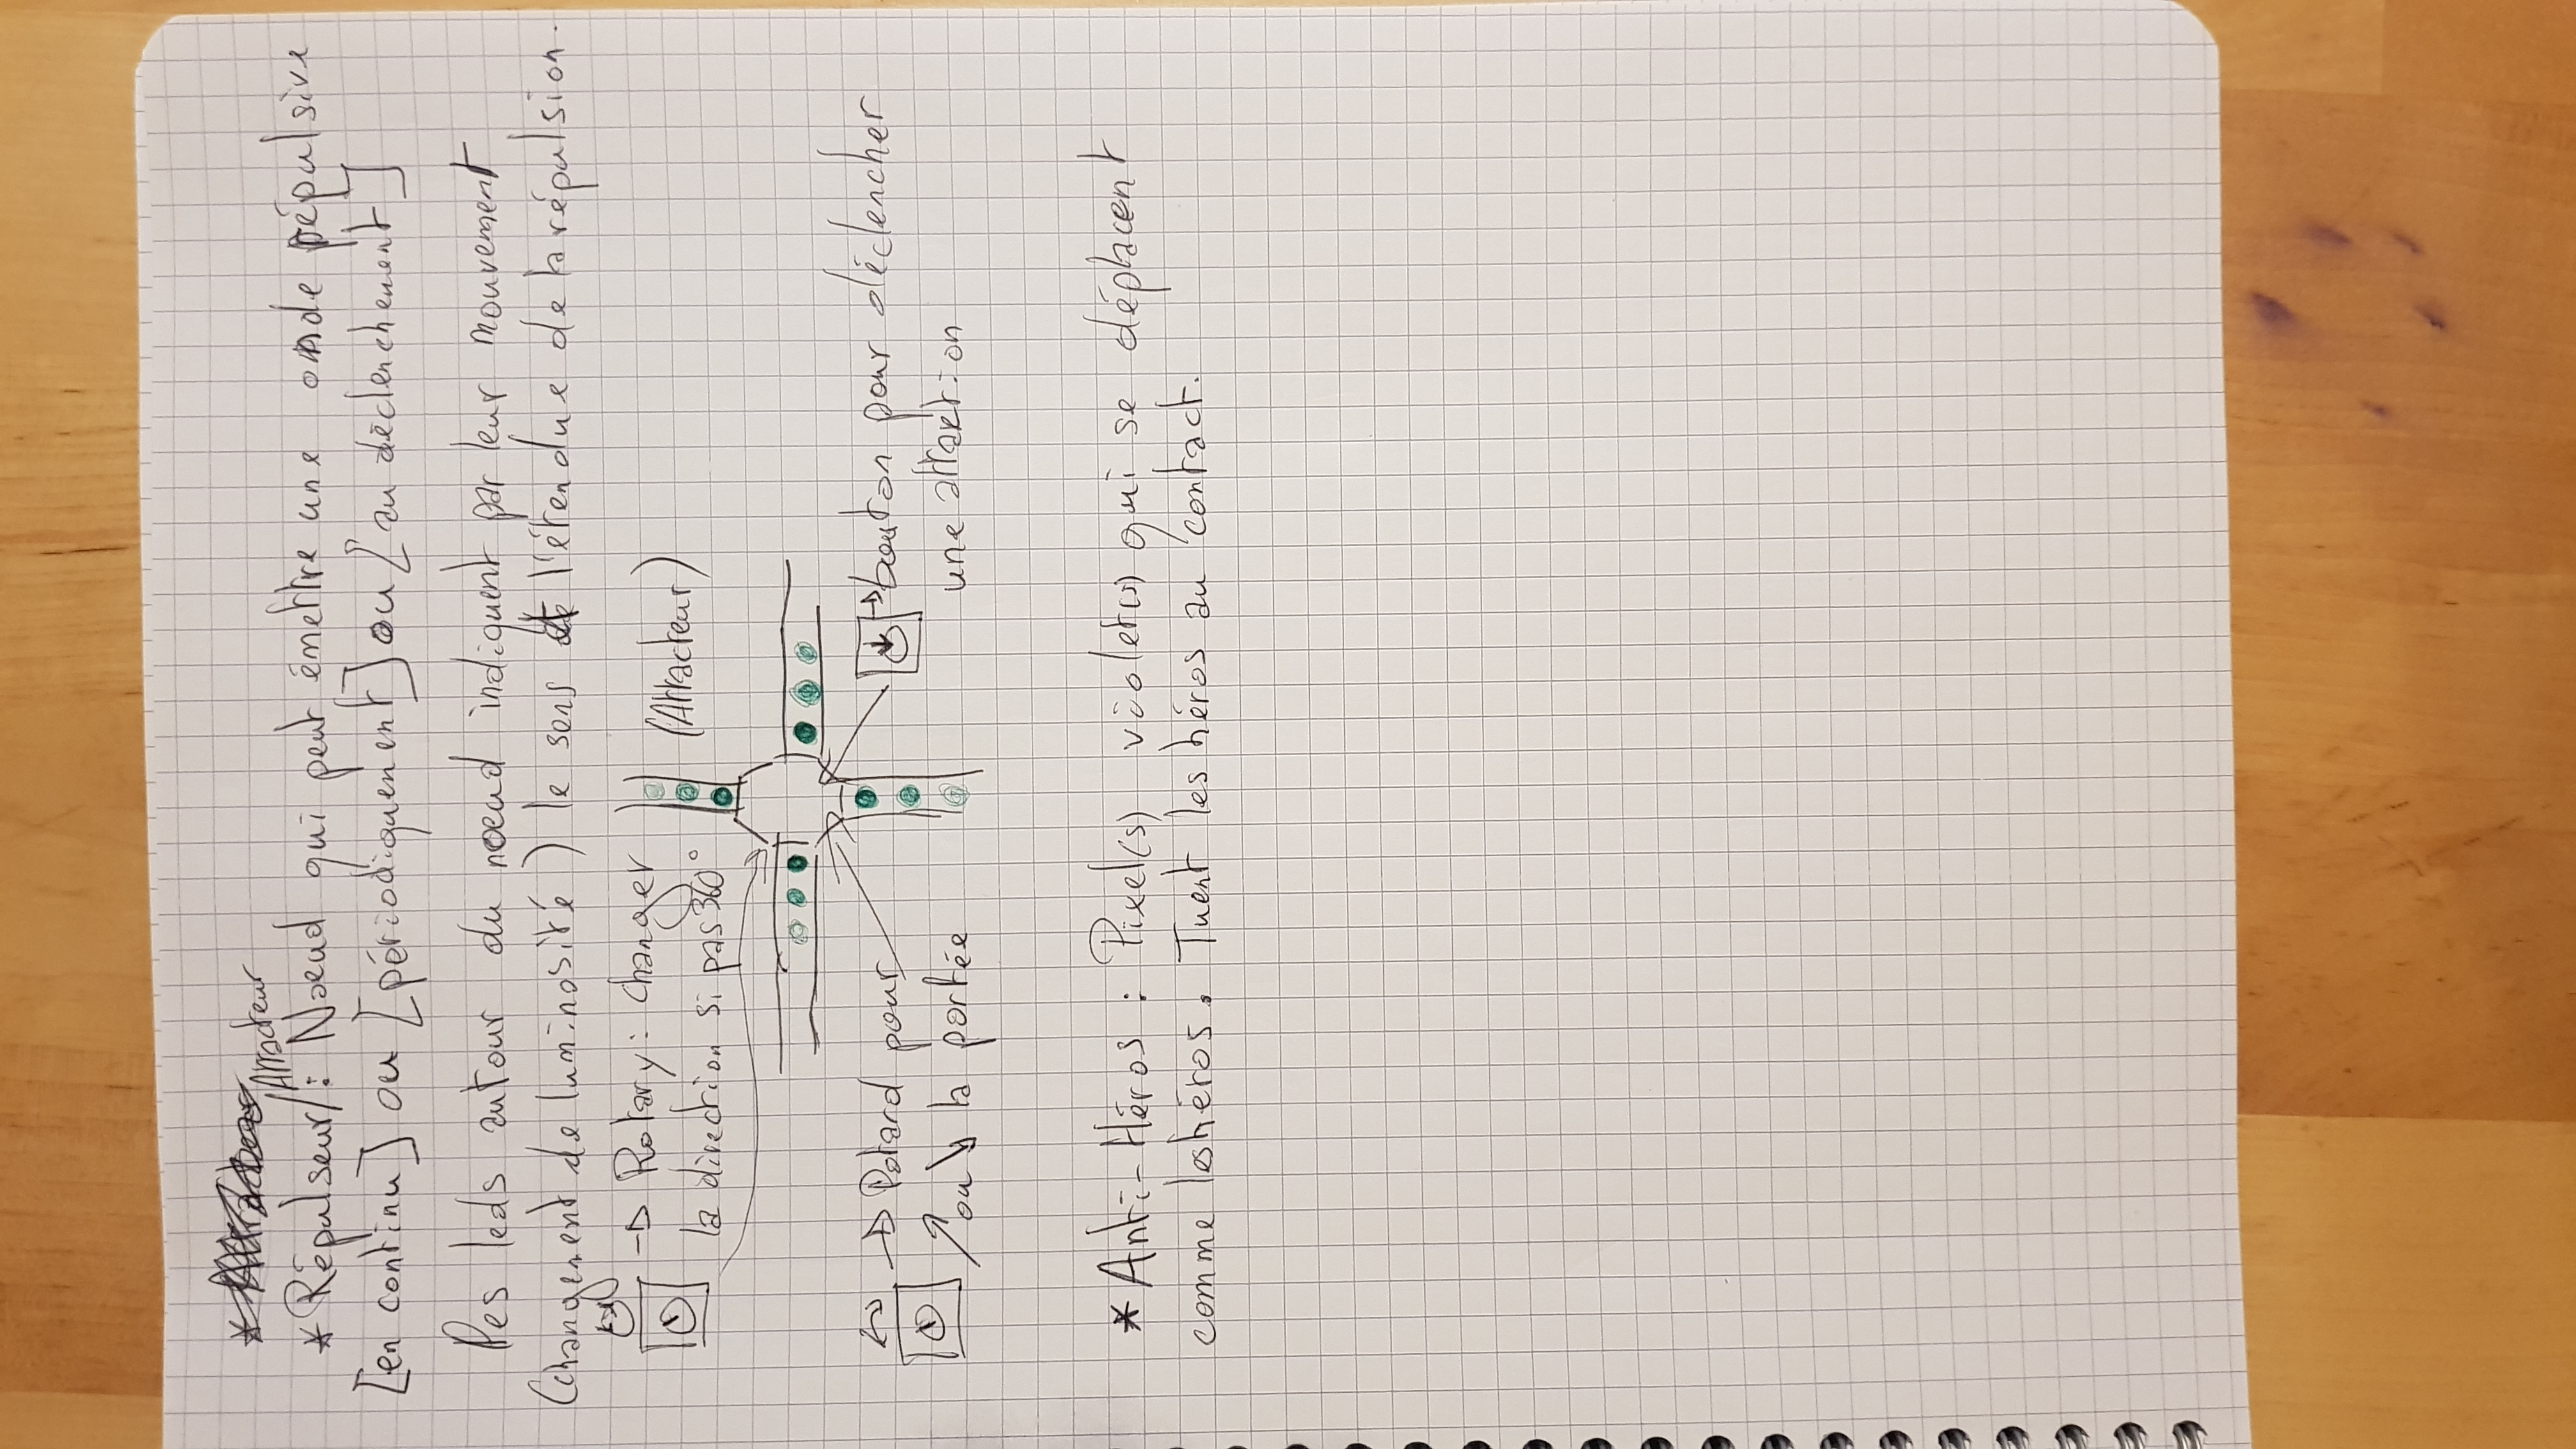 /Attracteur
* Répulseur/: Noeud qui peut émettre une onde répulsive
[en continu] ou [périodiquement] ou [au déclenchement]
Des leds autour du noeud indiquent par leur mouvement
(changement de luminosité) le sens et l'étendue de la répulsion.
→ Rotary: changer
la direction si pas 360°
(Attracteur)
→ Potard pour
↗ ou ↘ la portée
→ bouton pour déclencher
une attraction
* Anti-Héros : Pixel(s) violet(s) qui se déplacent
comme les héros. Tuent les héros au contact.